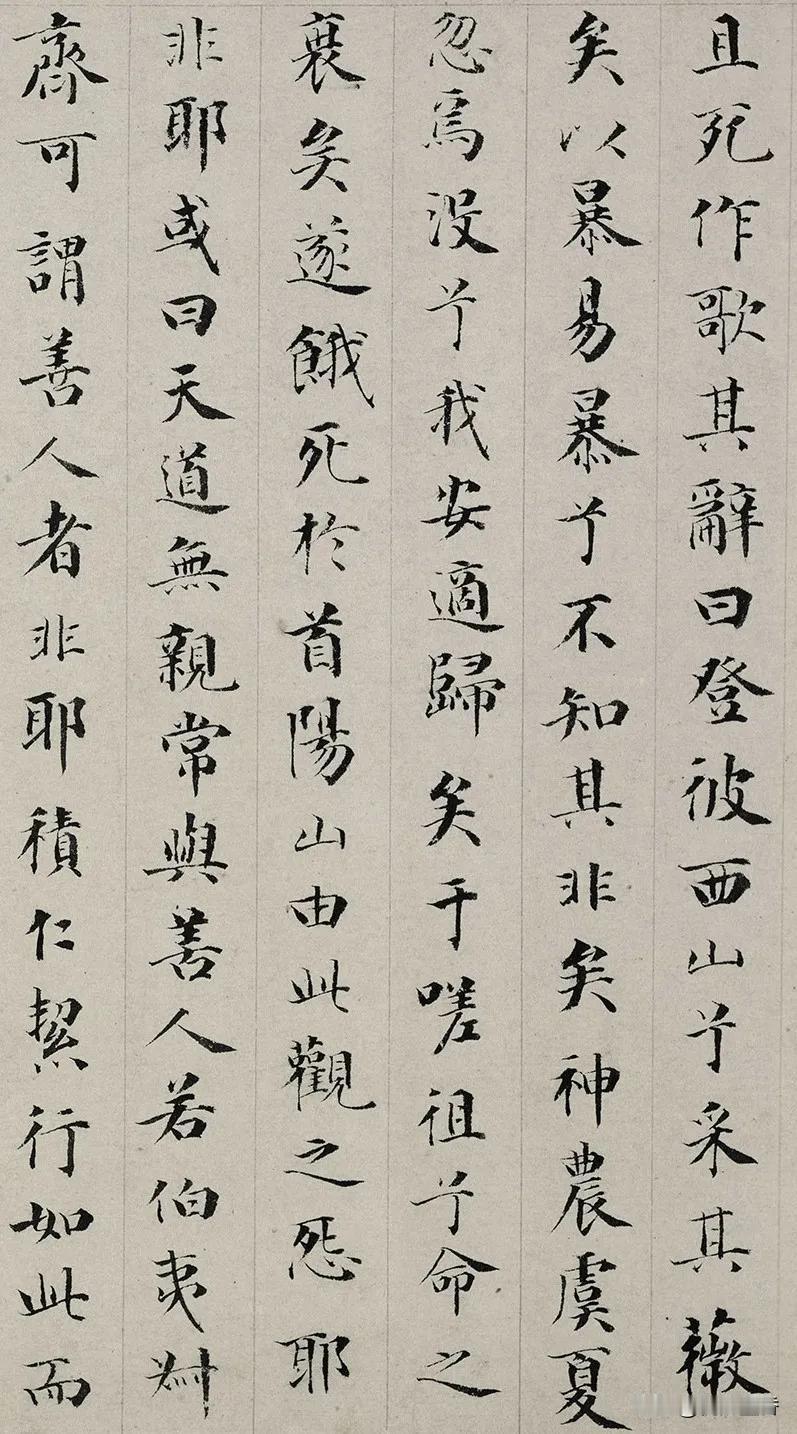 且死作歌其辭曰登彼西山兮采其薇
矣以暴易暴兮不知其非矣神農虞夏
忽焉没兮我安適歸矣于嗟徂兮命之
衰矣遂餓死於首陽山由此觀之怨耶
非耶或曰天道無親常與善人若伯夷叔
齊可謂善人者非耶積仁絜行如此而